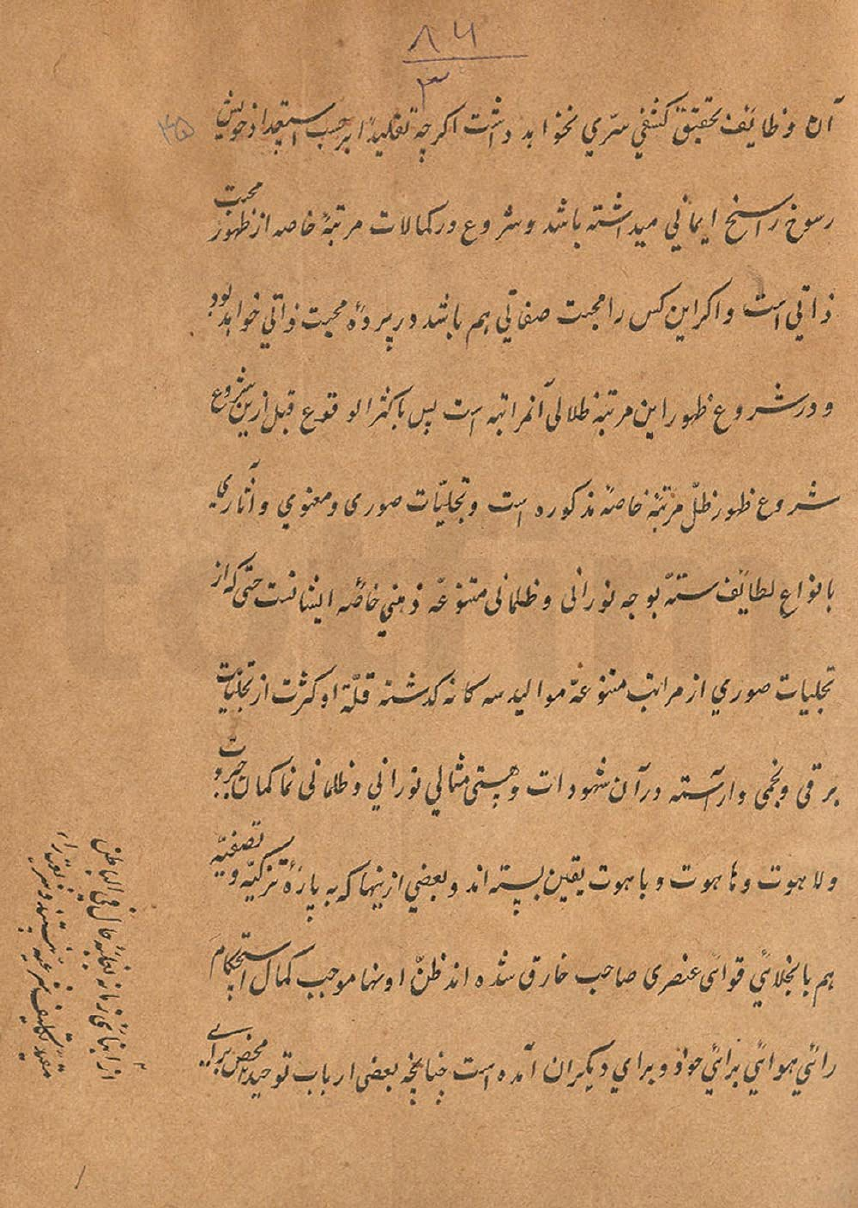 ۸۶
۳
۳۵
آن وظایف تحقیق کشفی سرّي نخواهد داشت اکرچه تقلیدًا برحسب استعداد خویش
رسوخ راسخ ایمانی میداشته باشد و شروع در کمالات مرتبهٔ خاصه از ظهور محبت
ذاتي است و اکر این کس را محبت صفاتي هم باشد در پردهٔ محبت ذاتي خواهد بود
و در شروع ظهور این مرتبه ظلالی آنمراتبه است پس باکثر الوقوع قبل ازین شروع
شروع ظهور ظلّ مرتبهٔ خاصهٔ مذکوره است و تجلیّات صوری و معنوي و آثاري
بانواع لطایف ستّه بوجه نورانی و ظلمانی متنوّعه ذهني خاصّه ایشانست حتی که از
تجلیات صوري از مراتب متنوّعهٔ موالید سه کانه کدشته قلّة او کثرت از تجلیّات
برقی و نجمی وارسته در آن شهودات و هستی مثالي نوراني و ظلمانی نما کمان جبروت و
ولاهوت و هاهوت و باهوت یقین بسته اند و بعضي ازینها که به پارهٔ تزکیّه و تصفیّه
هم بانجلائي قوائی عنصری صاحب خارق شده اند ظنّ اوشها موجب کمال استحکام
رائي هوائي برائي خود و براي دیکران آمده است چنانچه بعضی ارباب توحید محض برای
از ابنائی زمانه